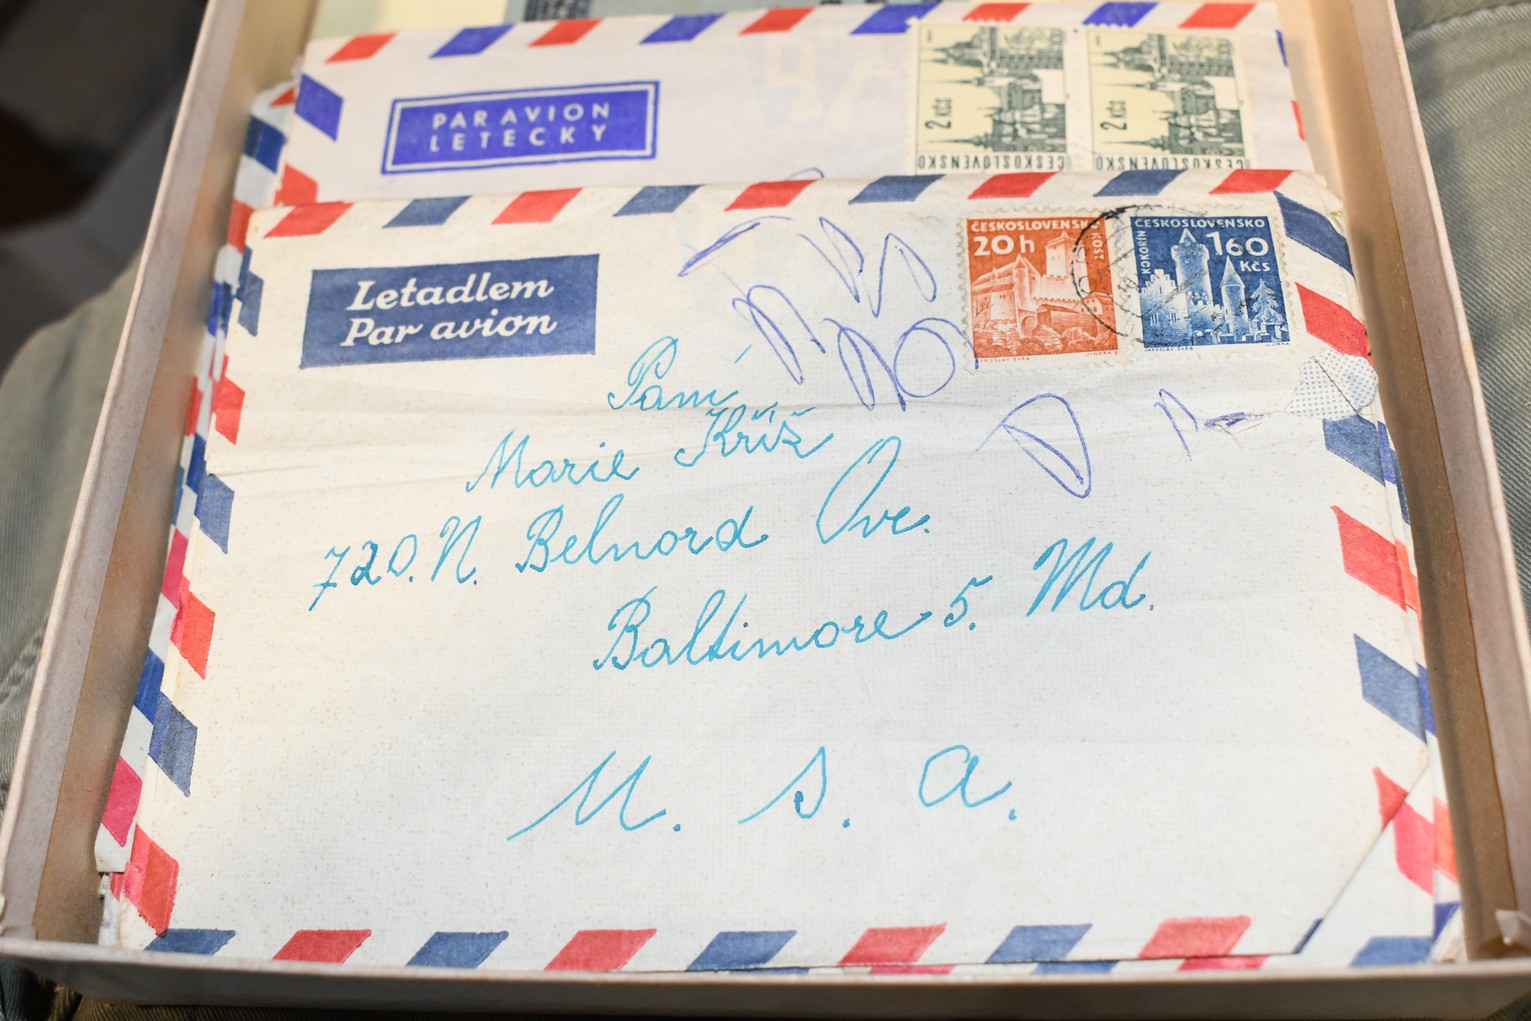 PAR AVION
LETECKY
2 Kčs
ČESKOSLOVENSKO
2 Kčs
ČESKOSLOVENSKO
Letadlem
Par avion
ČESKOSLOVENSKO
20 h
KOST
JAROSLAV ŠVÁB
ČESKOSLOVENSKO
KOKOŘÍN
1,60
Kčs
JAROSLAV ŠVÁB
Paní
Marie Kříž
720. N. Belnord Ave.
Baltimore 5. Md.
U. S. A.